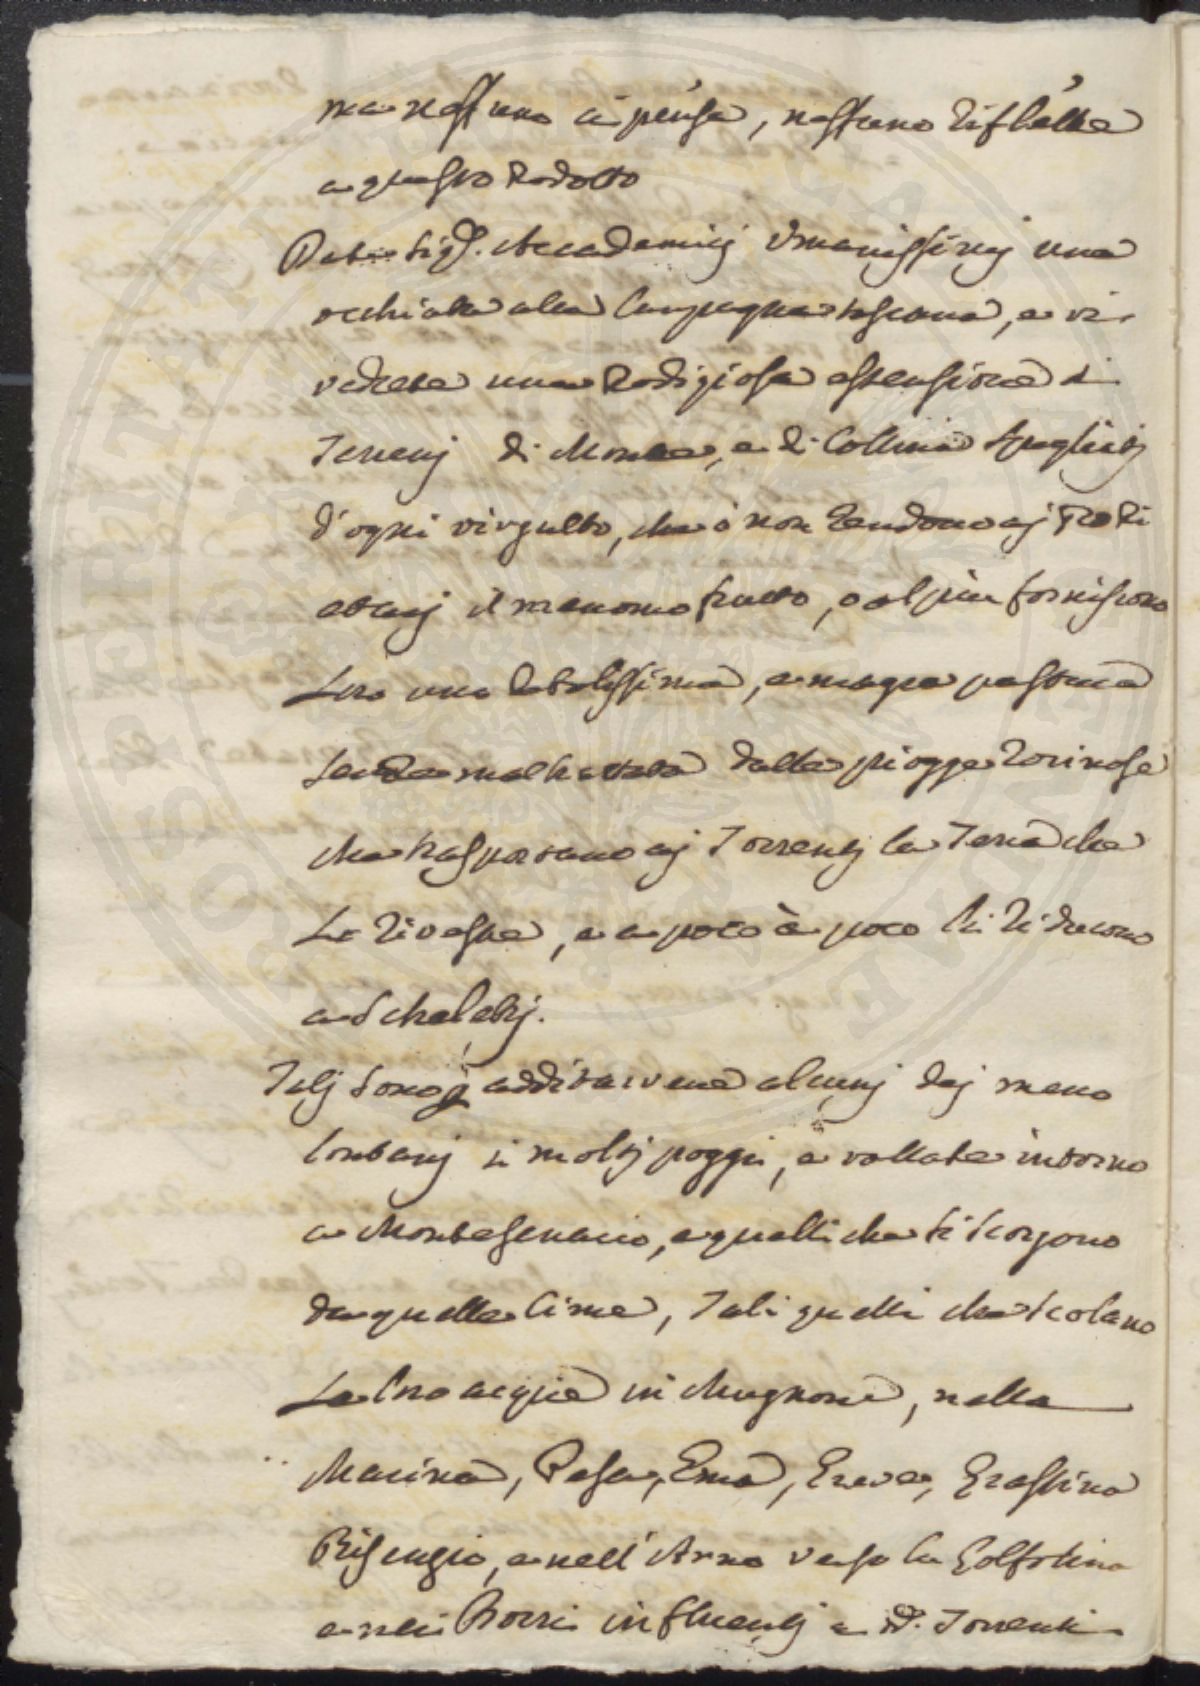 ma nessuno ci pensa, nessuno riflette
a questo prodotto
Date Sigri. Accademicj Umanissimj una
occhiata alla Campagna toscana, e vi
vedrete una prodigiosa estensione di
Terrenj di Monte, e di Collina spogliatj
d'ogni virgulto, che ò non rendono aj Proprie
tarj il menomo frutto, o al più forniscono
loro una debolissima, e magra pastura
senza maltrattata dalle piogge rovinose
che trasportano aj Torrentj la Terra che
Le riveste, e a poco à poco li riducono
a Scheletrj.
Talj sono p additarvene alcunj dej meno
lontanj i moltj poggi, e vallate intorno
a Montesenario, e quelli che si scorgono
da quelle cime, Tali quelli che scolano
Le loro acque in Mugnone, nella
Marina, Pesa, Ema, Greve, Grassina
Bisenzio, e nell'Arno verso la Golfolina
e nei Borri influentj a dd. Torrenti
PROSPERITATI PUBLICAE AUGENDAE